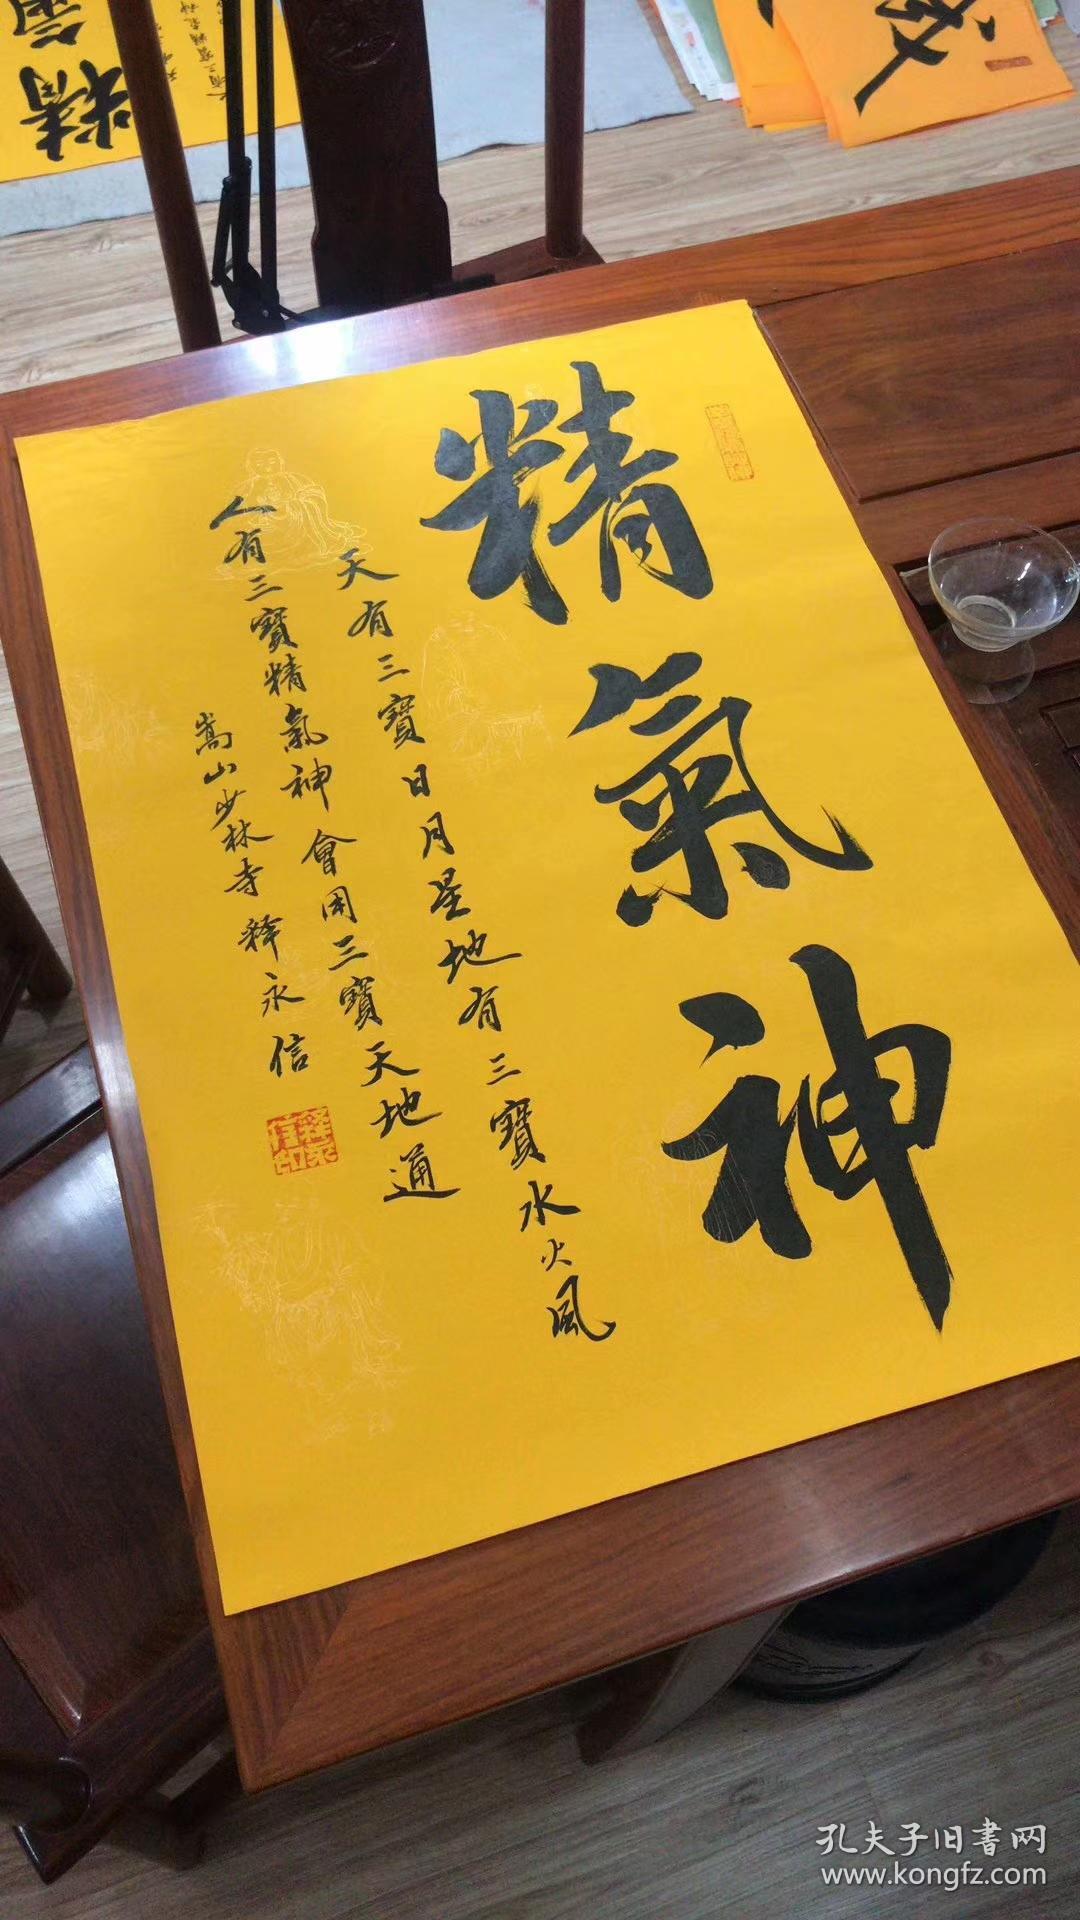 精氣神
天有三寶日月星地有三寶水火風
人有三寶精氣神會用三寶天地通
嵩山少林寺释永信
孔夫子旧書网
www.kongfz.com